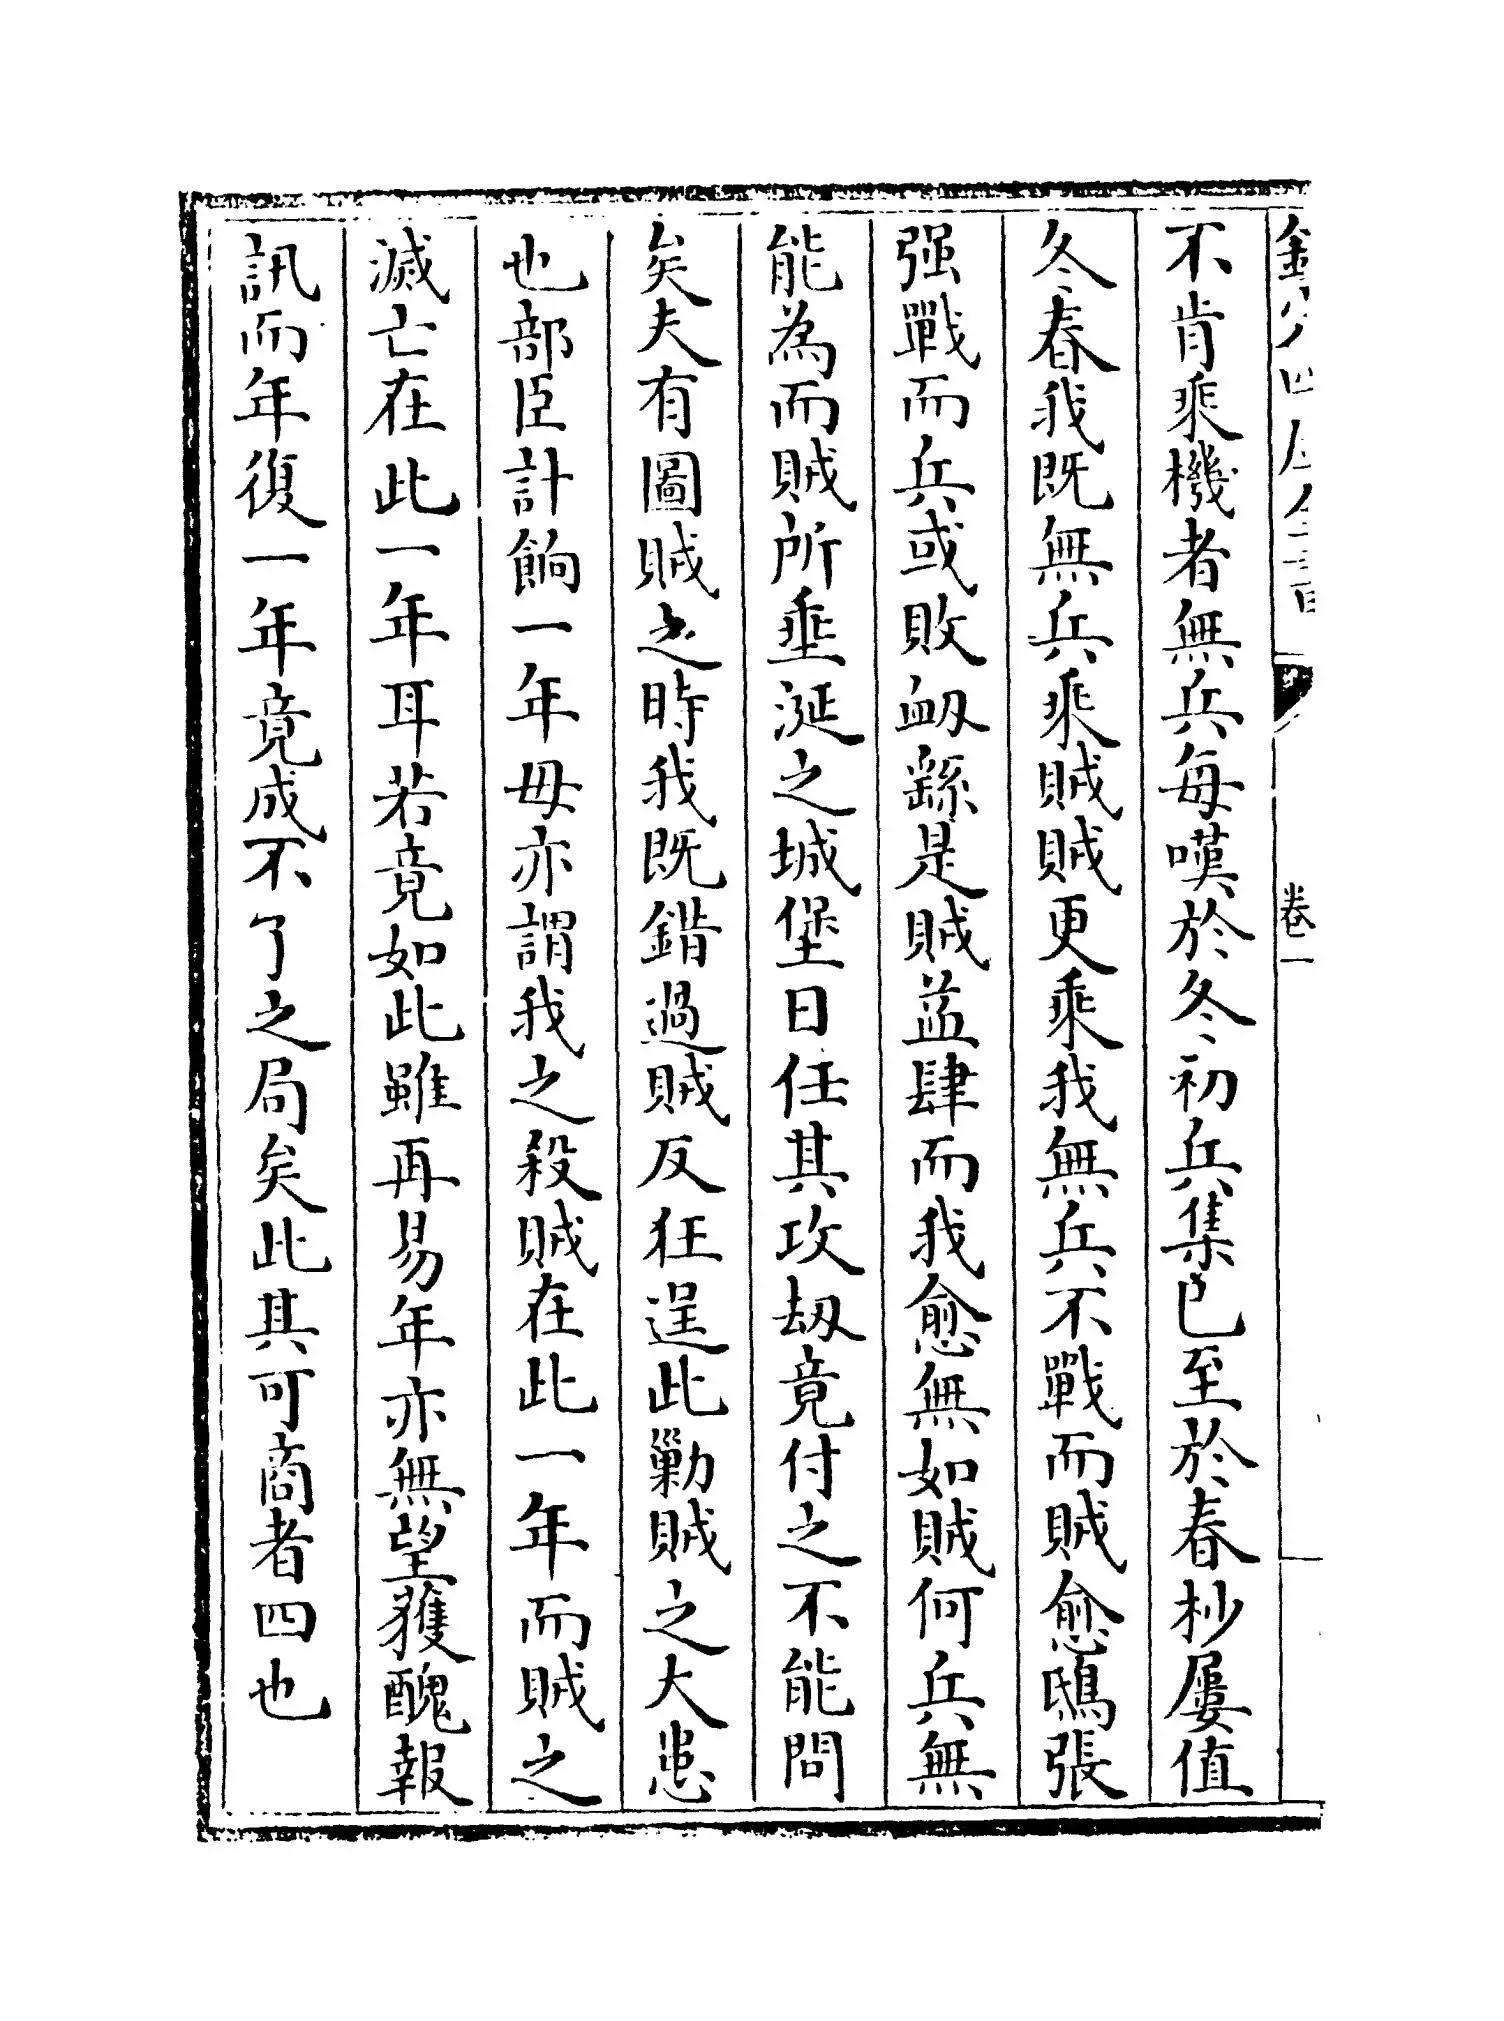 欽定四庫全書
卷一
不肯乘機者無兵毎嘆於冬初兵集已至於春杪屢值
冬春我既無兵乘賊賊更乘我無兵不戰而賊愈鴟張
强戰而兵或敗衂繇是賊益肆而我愈無如賊何兵無
能為而賊所垂涎之城堡日任其攻刼竟付之不能問
矣夫有圖賊之時我既錯過賊反狂逞此勦賊之大患
也部臣計餉一年毋亦謂我之殺賊在此一年而賊之
滅亡在此一年耳若竟如此雖再易年亦無望獲醜報
訊而年復一年竟成不了之局矣此其可商者四也